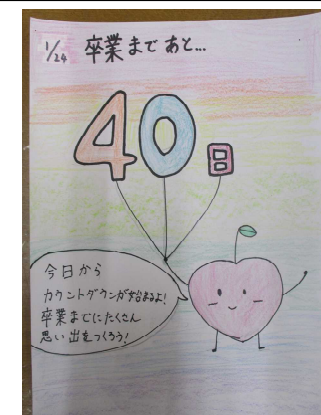 1/24
卒業まであと...
40日
今日から
カウントダウンが始まるよ!
卒業までにたくさん
思い出をつくろう!